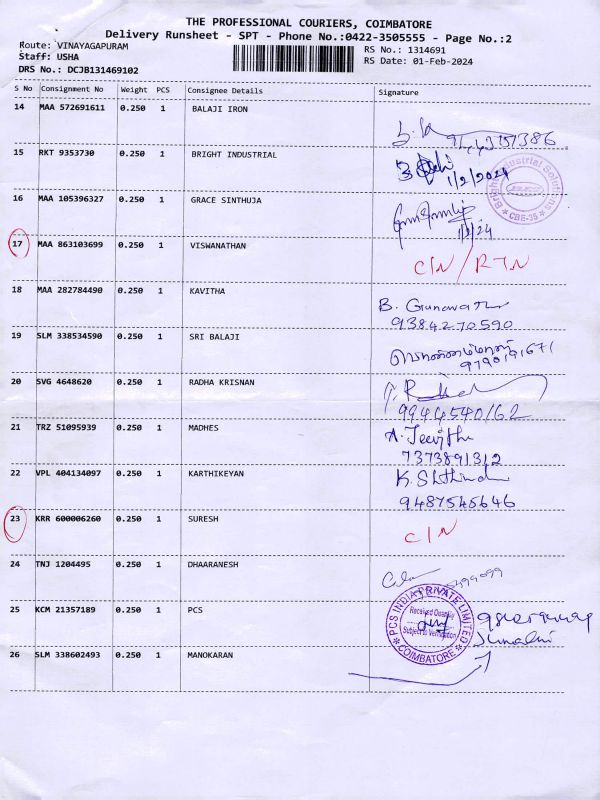 THE PROFESSIONAL COURIERS, COIMBATORE
Delivery Runsheet - SPT - Phone No.:0422-3505555 - Page No.:2
Route: VINAYAGAPURAM
RS No.: 1314691
Staff: USHA
RS Date: 01-Feb-2024
DRS No.: DCJB131469102
S No Consignment No Weight PCS Consignee Details Signature
14 MAA 572691611 0.250 1 BALAJI IRON
15 RKT 9353730 0.250 1 BRIGHT INDUSTRIAL
1/2/2024
Bright Industrial Solutions
* CBE-35 *
16 MAA 105396327 0.250 1 GRACE SINTHUJA
1/2/24
17 MAA 863103699 0.250 1 VISWANATHAN
C/N / RTN
18 MAA 282784490 0.250 1 KAVITHA
B.
9384270590
19 SLM 338534590 0.250 1 SRI BALAJI
9790191671
20 SVG 4648620 0.250 1 RADHA KRISNAN
9944540162
21 TRZ 51095939 0.250 1 MADHES
7373891312
22 VPL 404134097 0.250 1 KARTHIKEYAN
9487545646
23 KRR 600006260 0.250 1 SURESH
C/N
24 TNJ 1204495 0.250 1 DHAARANESH
25 KCM 21357189 0.250 1 PCS
PCS INDIA PRIVATE LIMITED
Received Quantity
Subject to Verification
* COIMBATORE *
26 SLM 338602493 0.250 1 MANOKARAN